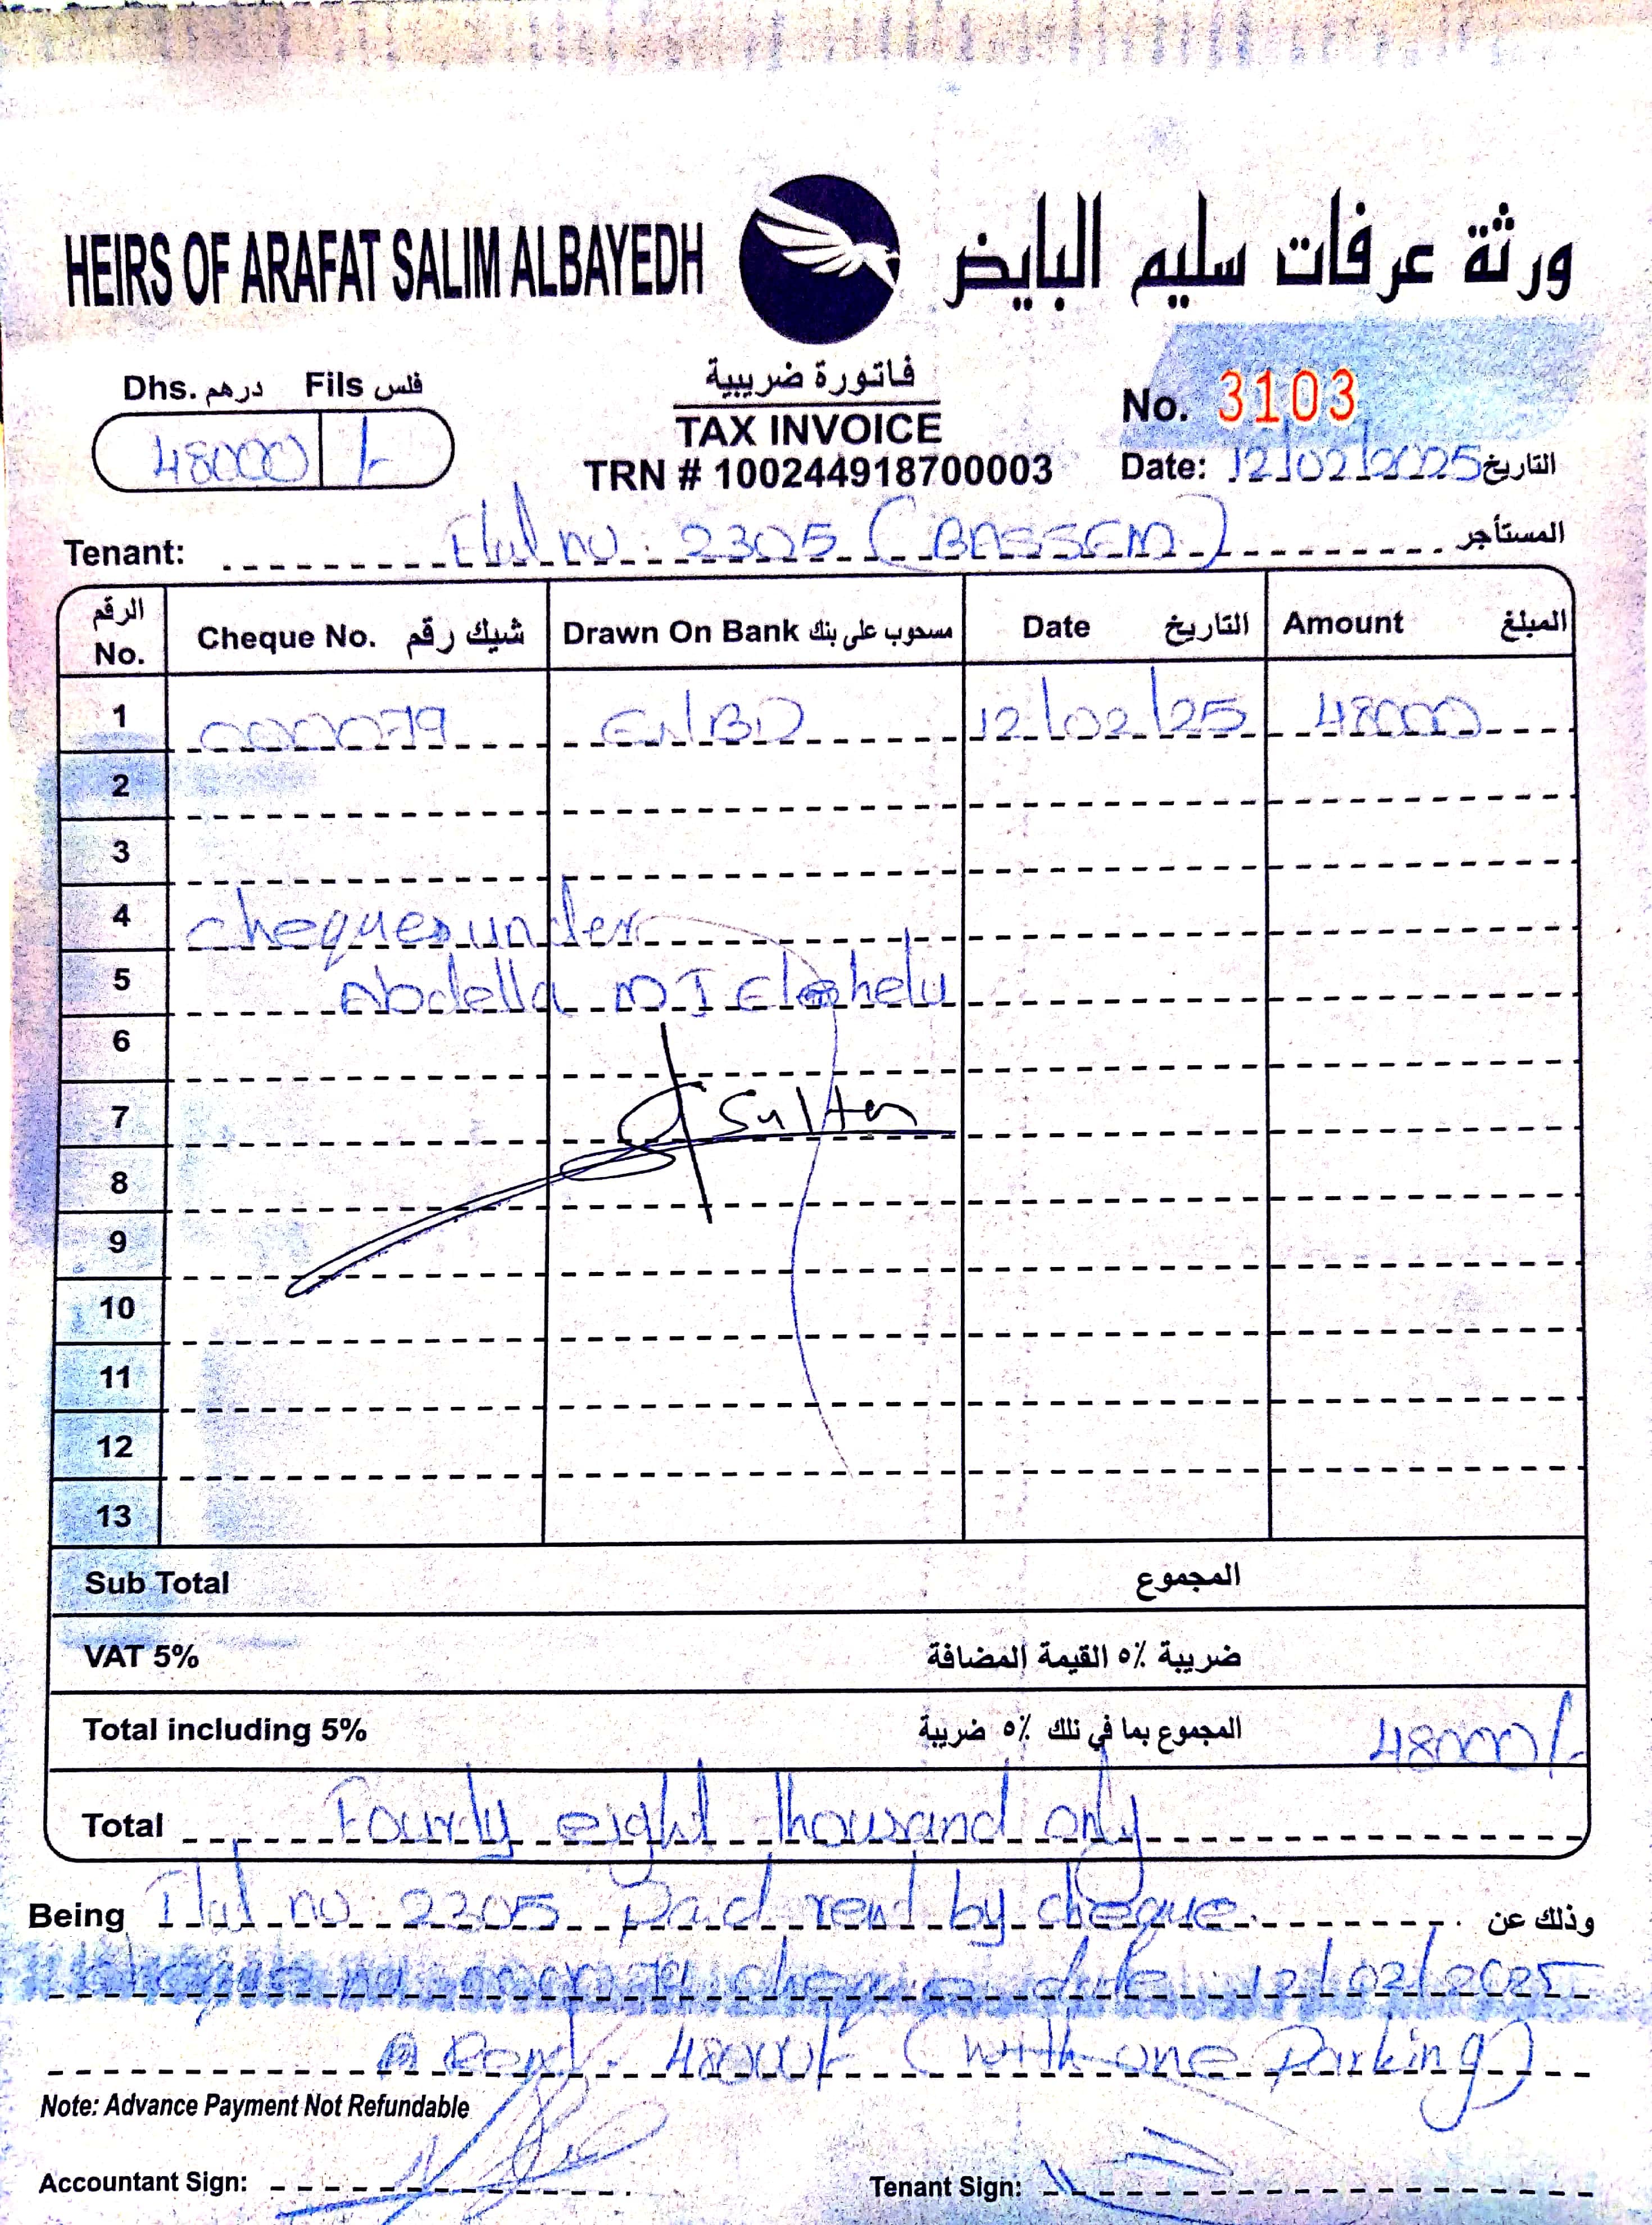 HEIRS OF ARAFAT SALIM ALBAYEDH ورثة عرفات سليم البايض
Dhs. درهم Fils فلس
48000 /-
فاتورة ضريبية
TAX INVOICE
TRN # 100244918700003
No. 3103
Date: 12/02/2025 التاريخ
Tenant: Flat no: 2305 (BASSEM) المستأجر
الرقم No. Cheque No. شيك رقم Drawn On Bank مسحوب على بنك Date التاريخ Amount المبلغ
1 000079 ENBD 12/02/25 48000
2
3
4 cheques under
5 Abdella M I
6
7 Sultan
8
9
10
11
12
13
Sub Total المجموع
VAT 5% ضريبة ٥٪ القيمة المضافة
Total including 5% المجموع بما في ذلك ٥٪ ضريبة 48000/-
Total Fourty eight thousand only
Being Flat no: 2305 Paid rent by cheque وذلك عن
cheque no 000079 cheque date: 12/02/2025
A Rent: 48000/- (with one Parking)
Note: Advance Payment Not Refundable
Accountant Sign: Tenant Sign: